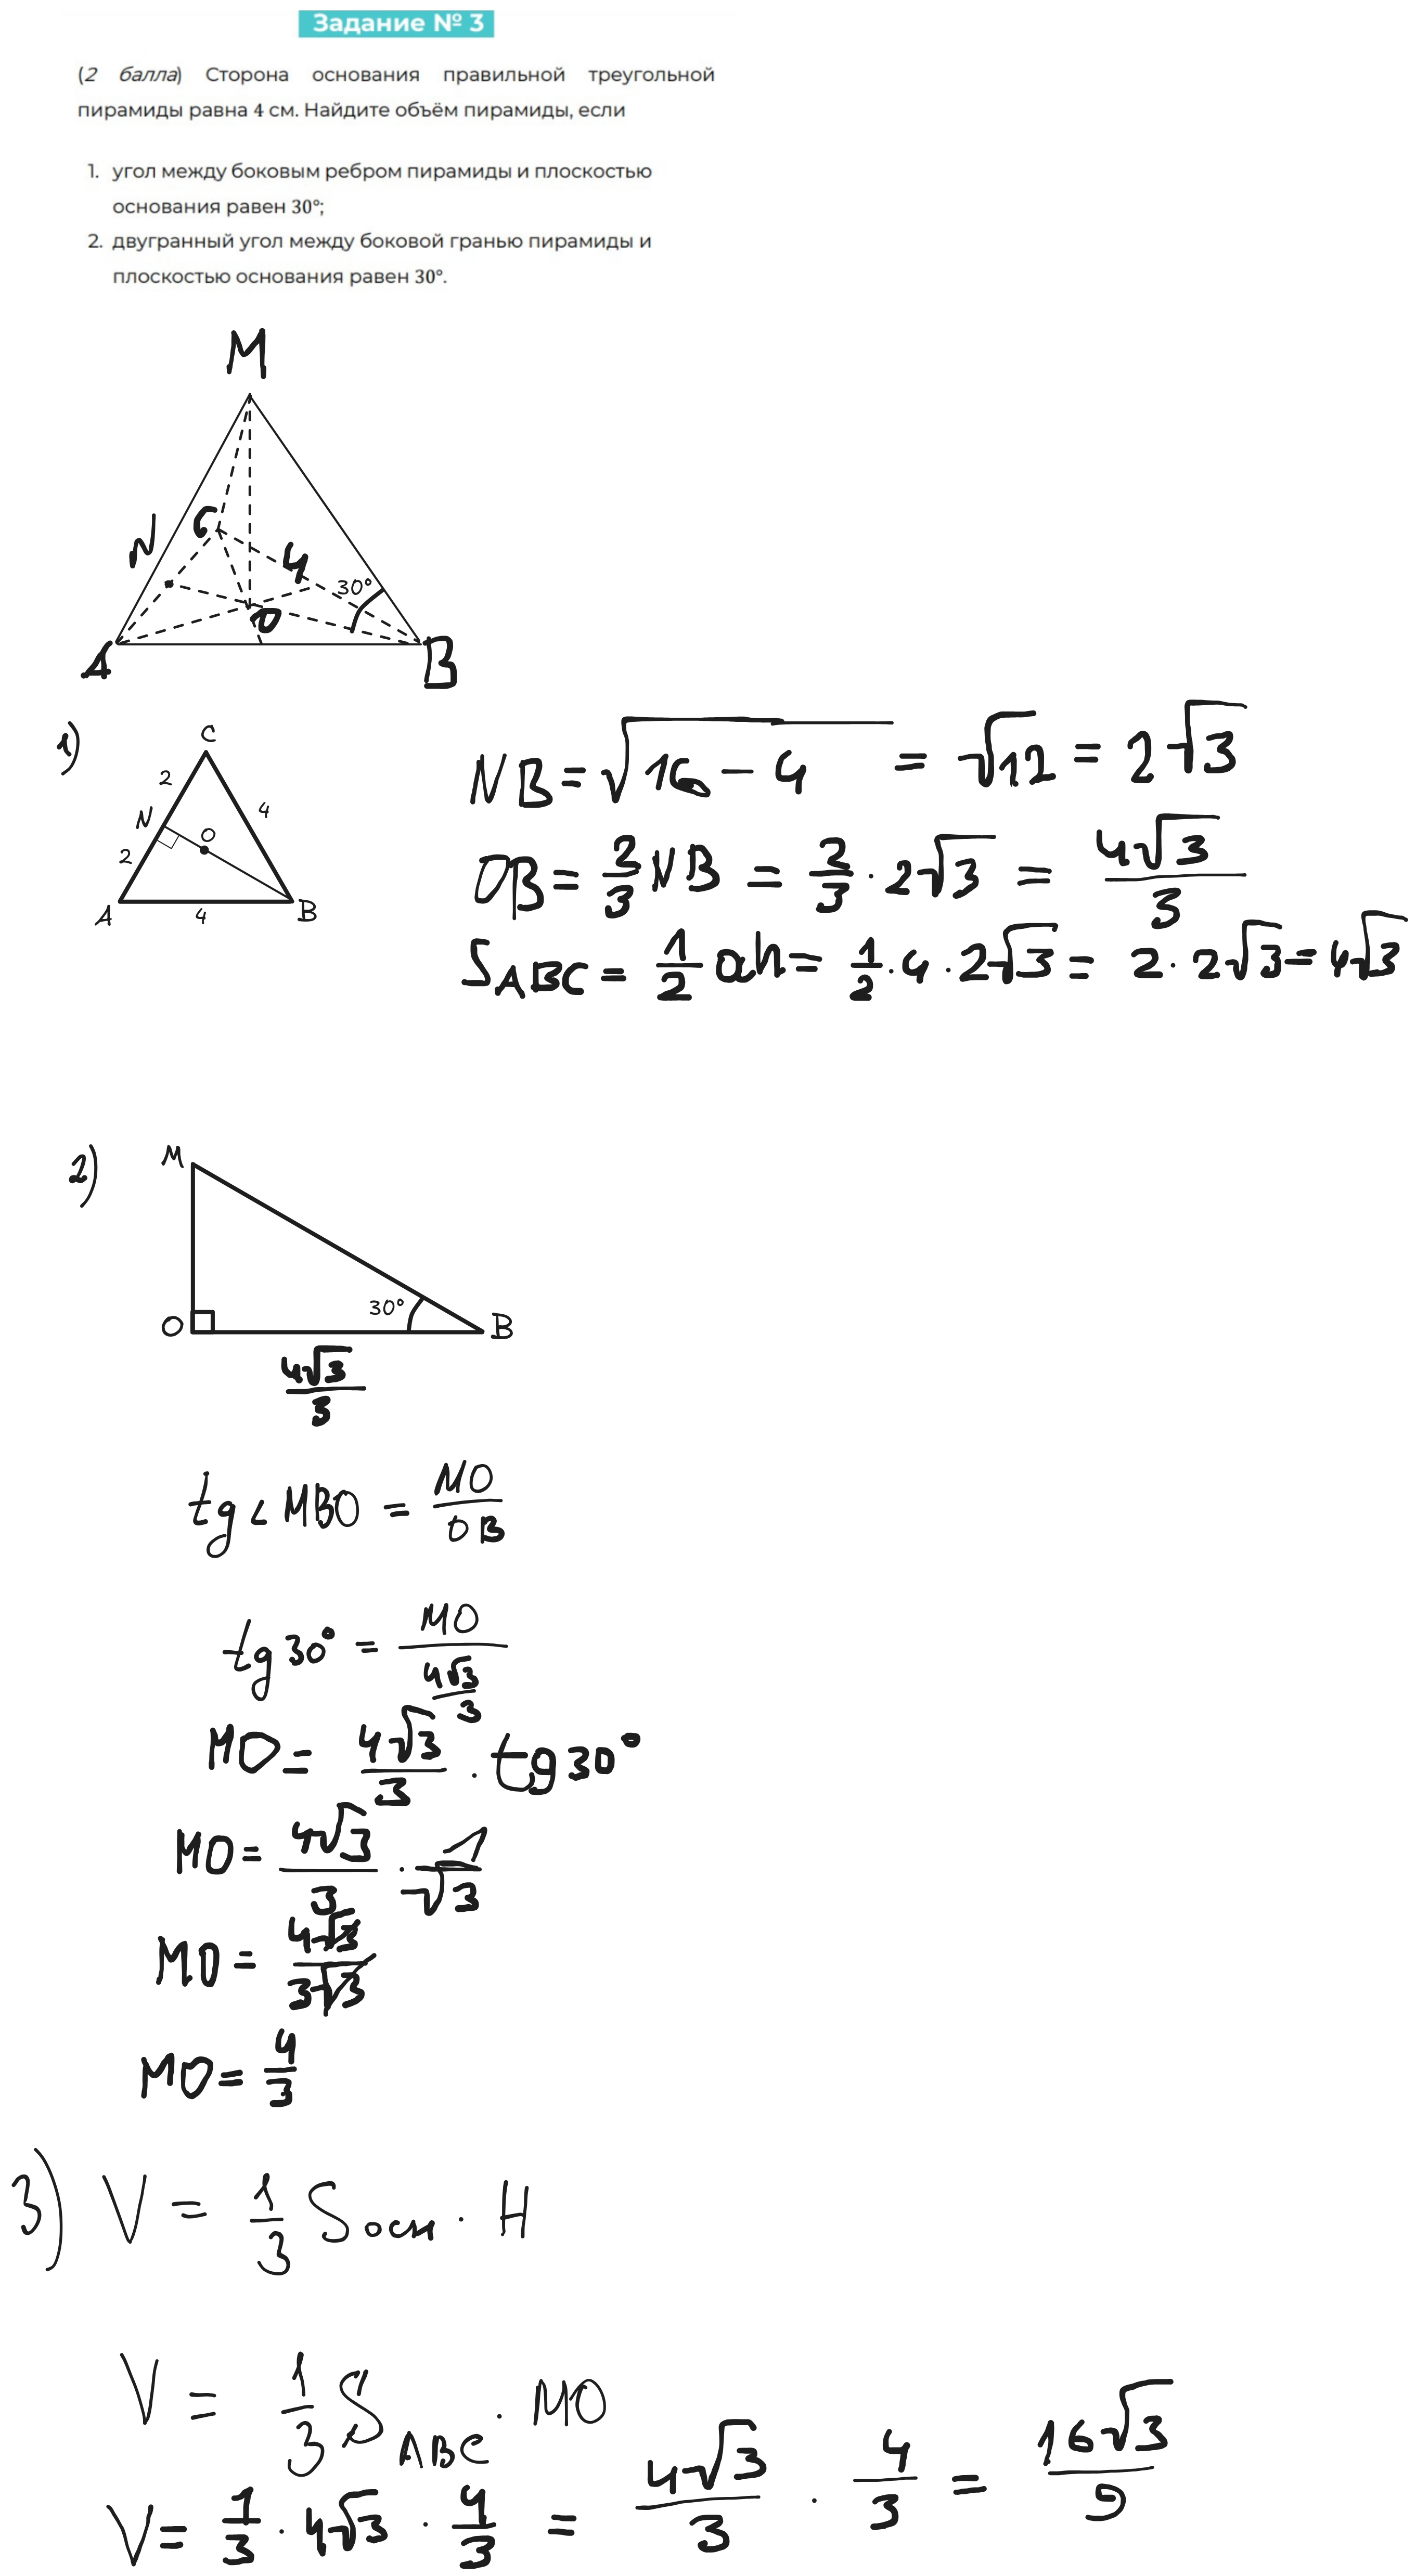 Задание № 3
(2 балла) Сторона основания правильной треугольной
пирамиды равна 4 см. Найдите объём пирамиды, если
1. угол между боковым ребром пирамиды и плоскостью
основания равен 30°;
2. двугранный угол между боковой гранью пирамиды и
плоскостью основания равен 30°.
M
N
C
4
30°
O
A
B
1)
C
2
N
4
O
2
A
4
B
NB = √(16 − 4) = √12 = 2√3
OB = 2/3 NB = 2/3 · 2√3 = 4√3/3
S ABC = 1/2 ah = 1/2 · 4 · 2√3 = 2 · 2√3 = 4√3
2)
M
30°
O
B
4√3/3
tg ∠ MBO = MO/OB
tg 30° = MO/(4√3/3)
MO = 4√3/3 · tg 30°
MO = 4√3/3 · 1/√3
MO = 4√3/3√3
MO = 4/3
3) V = 1/3 S осн · H
V = 1/3 S ABC · MO
V = 1/3 · 4√3 · 4/3 = 4√3/3 · 4/3 = 16√3/9